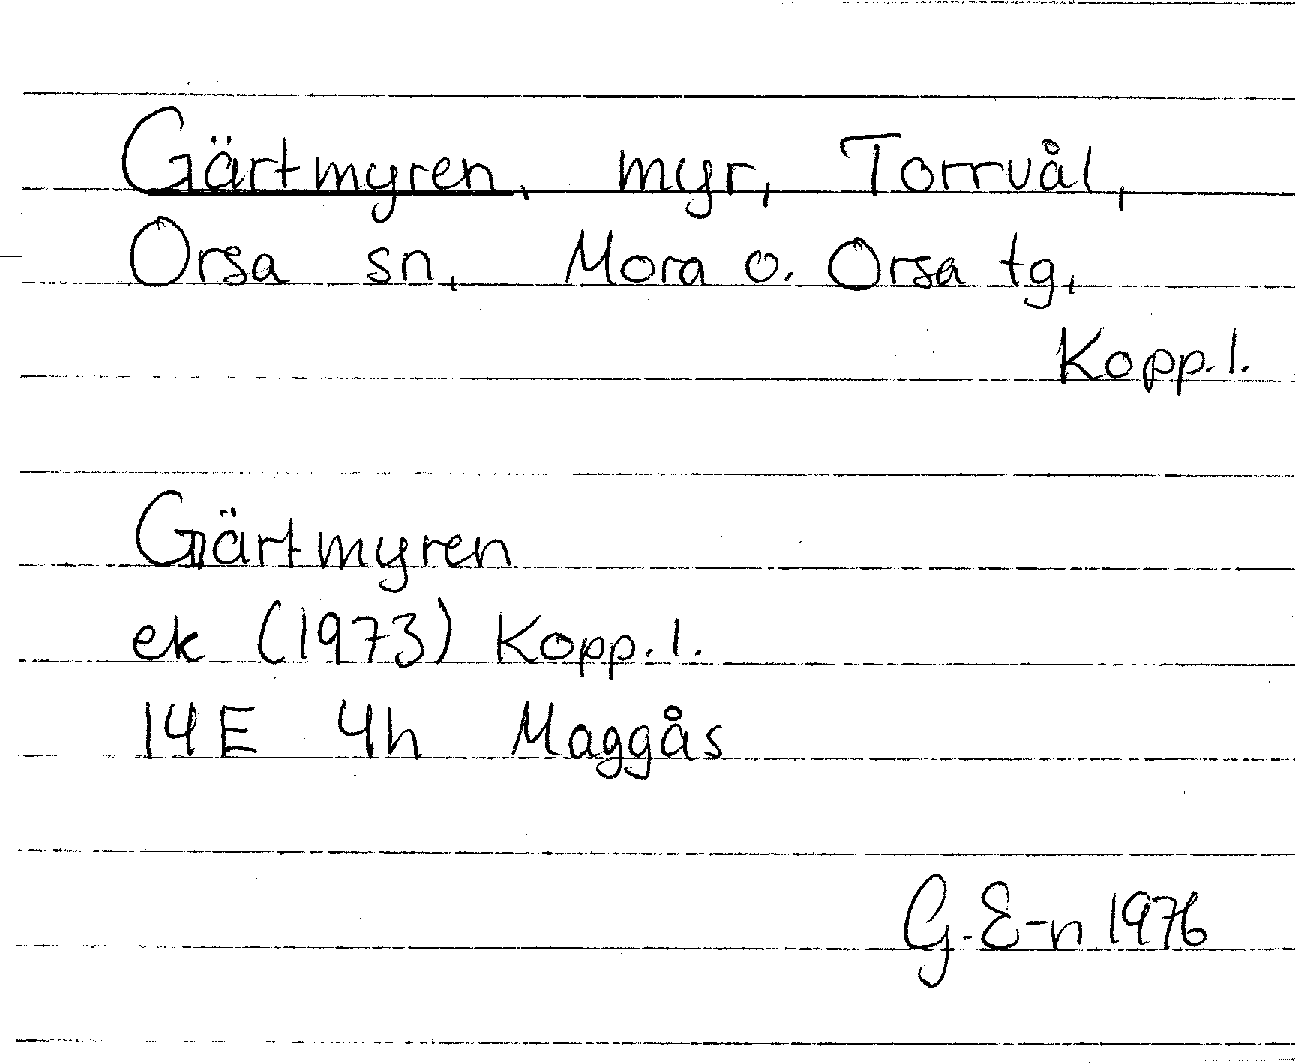 Gärtmyren, myr, Torrvål,
Orsa sn, Mora o. Orsa tg,
Kopp. l.
Gärtmyren
ek (1973) Kopp. l.
14E 4h Maggås
G. E-n 1976